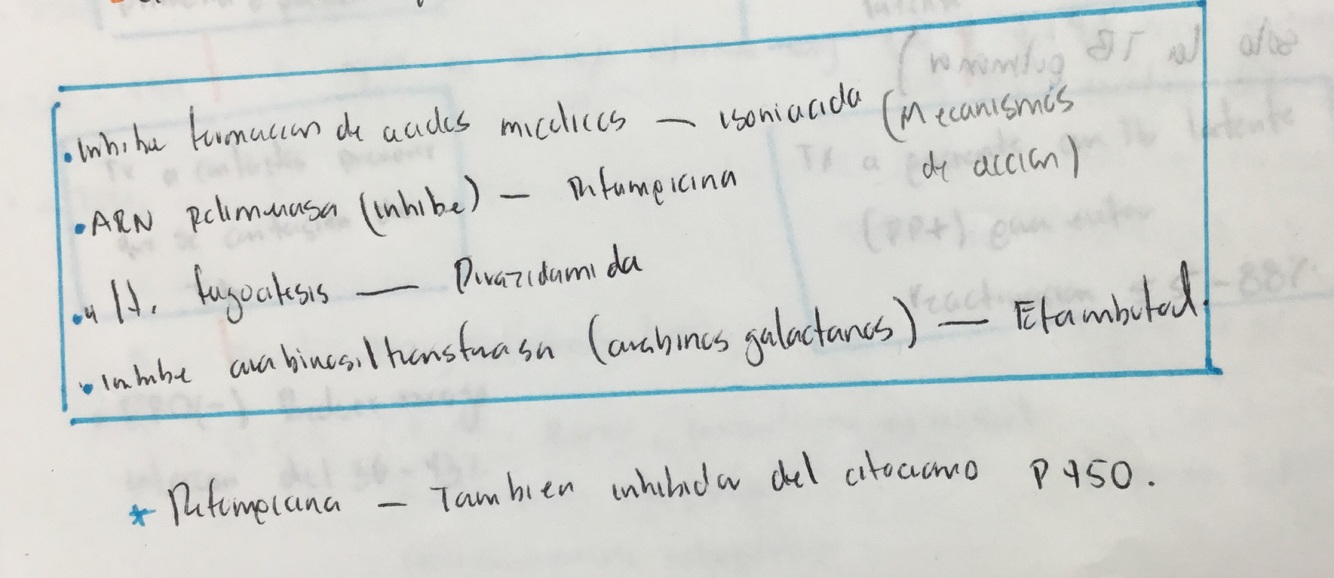 • Inhibe formacion de acidos micolicos — isoniacida (Mecanismos
de accion)
• ARN polimerasa (inhibe) — Rifampicina
• ↓ H. fagocitosis — Pirazidamida
• Inhibe arabinosiltransferasa (arabinos galactanos) — Etambutol.
* Rifampicina — Tambien inhibidor del citocromo P450.